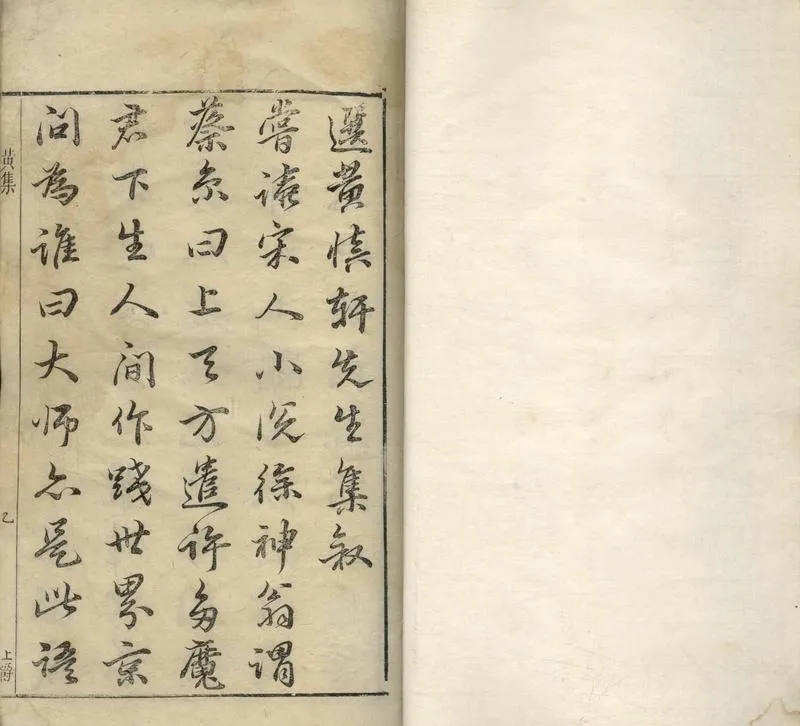 選黄慎軒先生集叙
嘗讀宋人小說徐神翁謂
蔡京曰上天方遣許多魔
君下生人間作踐世界京
問為誰曰大師亦是此語
黄集
乙
上爵